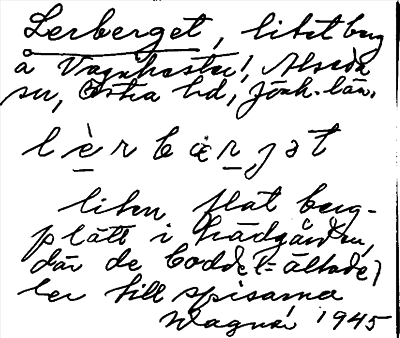 Lerberget, litet berg
å Vagnhester, Alseda
sn, Östra hd, Jönk. län.
lèrbærjət
liten flat berg-
platt i trädgården,
där de bodde (= ältade)
ler till spisarna
Wagnér 1945